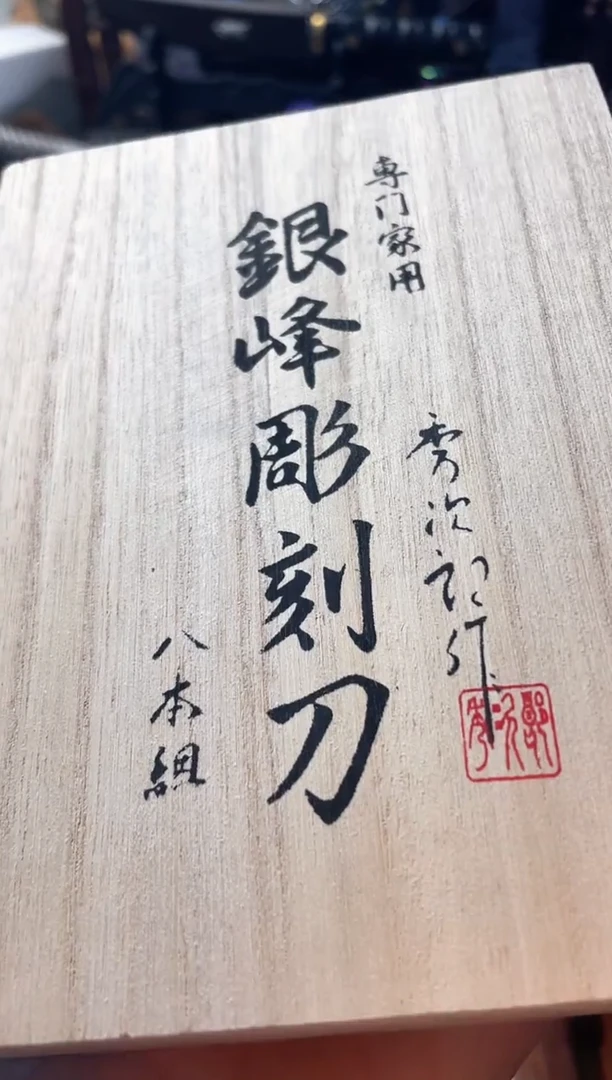 専門家用
秀次郎作
銀峰彫刻刀
八本組